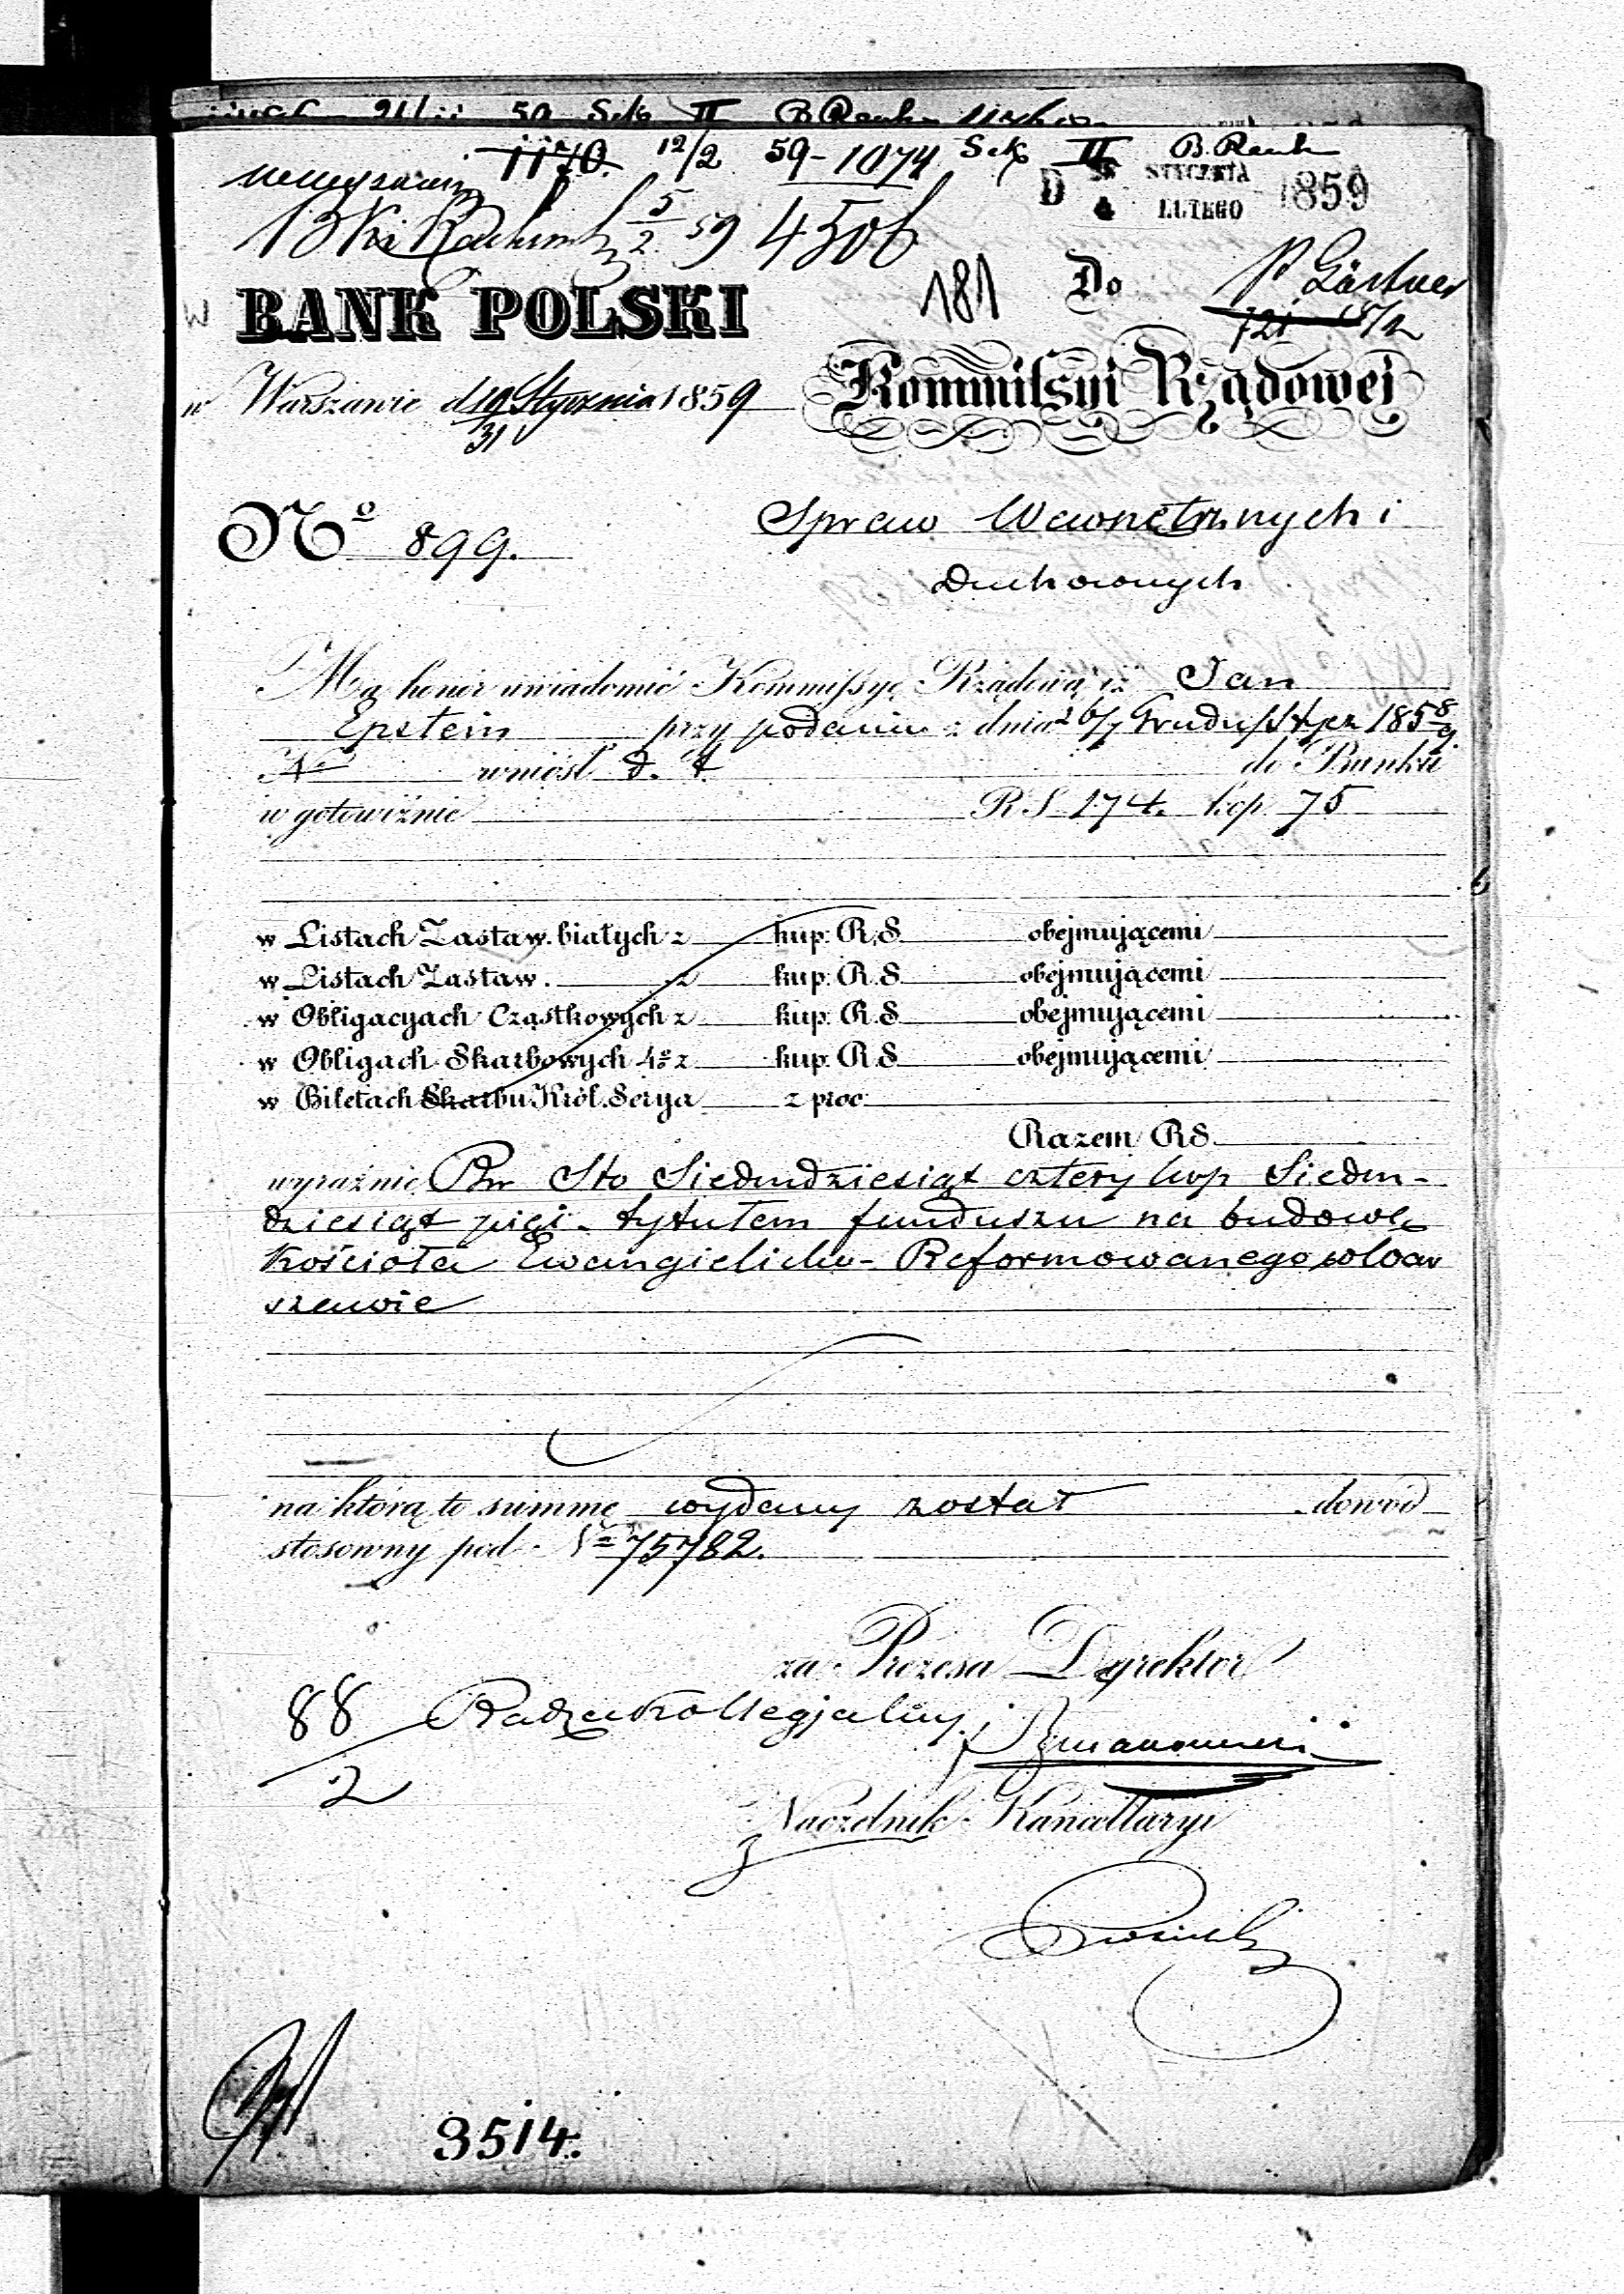 1170. 12/2 59 - 1074 Sek II B. Rach
D STYCZNIA
4 LUTEGO 1859
5/2 59 450b
181
Do
P Gärtner
BANK POLSKI
w Warszawie d 19/31 Stycznia 1859
Kommissyi Rządowej
No 899.
Spraw Wewnętrznych i
Duchownych
Ma honor uwiadomić Kommissyę Rządową iż Jan
Epstein przy podaniu z dnia 26/7 Grud/Stycz 1858/9
No wniósł d. t. do Banku
w gotowiźnie RS 174. kop. 75
w Listach Zastaw. białych z kup. R.S obejmującemi
w Listach Zastaw. z kup. R.S obejmującemi
w Obligacyach Cząstkowych z kup. R.S obejmującemi
w Obligach Skarbowych 4% z kup. R.S obejmującemi
w Biletach Skarbu Król. Serya z proc.
Razem RS
wyraźnie Rsr Sto Siedmdziesiąt cztery kop Siedm-
dziesiąt pięć - tytułem funduszu na budowę
kościoła Ewangielicko-Reformowanego w War
szawie
na którą to summę wydany został dowód
stosowny pod No 75782.
za Prezesa Dyrektor
88/2 Radzca Kollegjalny
Naczelnik Kancellaryi
3514.